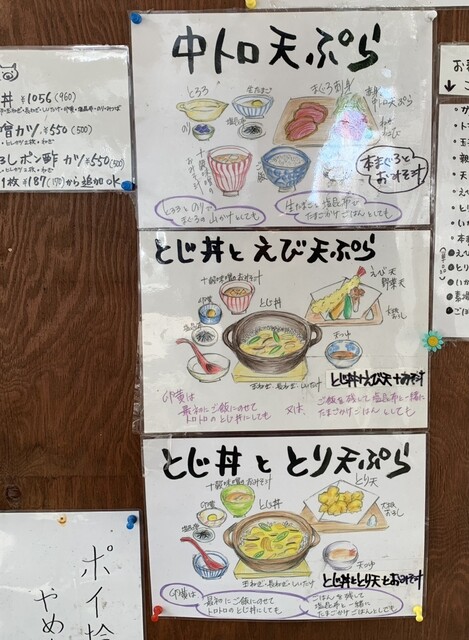 中トロ天ぷら
とろろ
生たまご
まぐろ刺身
中トロ天ぷら
のり
塩昆布
ご飯
本まぐろと
おみそ汁
とろろとのりで
まぐろの山かけとしても
生たまごと塩昆布で
たまごかけごはんとしても
とじ丼とえび天ぷら
十穀味噌のおみそ汁
卵黄
とじ丼
えび天
野菜天
塩昆布
天つゆ
玉ねぎ・長ねぎ・しいたけ
とじ丼+えび天+おみそ汁
卵黄は
最初にご飯にのせて
トロトロのとじ丼にしても
又は、
ご飯を残して塩昆布と一緒に
たまごかけごはんとしても
とじ丼ととり天ぷら
十穀味噌のおみそ汁
卵黄
とじ丼
とり天
塩昆布
大根おろし
天つゆ
玉ねぎ・長ねぎ・しいたけ
とじ丼ととり天とおみそ汁
卵黄は
最初にご飯にのせて
トロトロのとじ丼にしても
ごはんを残して
塩昆布と一緒に
たまごかけごはんとしても
丼 ¥1056(960)
カツ ¥550(500)
ろしポン酢 カツ ¥550(500)
1枚 ¥187(170)から追加OK
ポイ捨
やめ